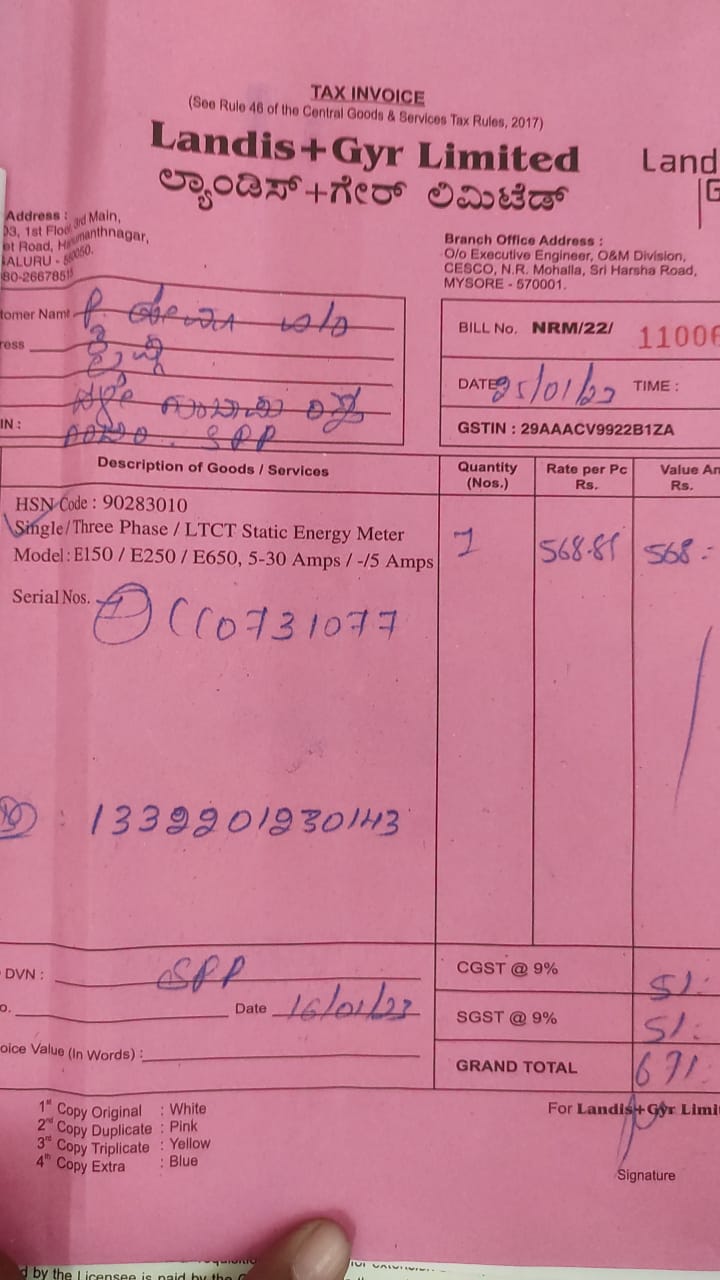 TAX INVOICE
(See Rule 46 of the Central Goods & Services Tax Rules, 2017)
Landis+Gyr Limited
Land
ಲ್ಯಾಂಡಿಸ್+ಗೇರ್ ಲಿಮಿಟೆಡ್
G
Address :
03, 1st Floor, 3rd Main,
et Road, Hanumanthnagar,
ALURU - 560050.
80-26678515
Branch Office Address :
O/o Executive Engineer, O&M Division,
CESCO, N.R. Mohalla, Sri Harsha Road,
MYSORE - 570001.
tomer Name
ress
IN :
SPP
BILL No. NRM/22/ 11006
DATE 25/01/23 TIME :
GSTIN : 29AAACV9922B1ZA
Description of Goods / Services
Quantity (Nos.)
Rate per Pc Rs.
Value Am Rs.
HSN Code : 90283010
Single/Three Phase / LTCT Static Energy Meter
Model : E150 / E250 / E650, 5-30 Amps / -/5 Amps
1 568.81 568.-
Serial Nos. CC0731077
: 1339201230143
DVN : SPP
o. Date 16/01/23
oice Value (In Words) :
CGST @ 9% 51.
SGST @ 9% 51.
GRAND TOTAL 671.
1st Copy Original : White
2nd Copy Duplicate : Pink
3rd Copy Triplicate : Yellow
4th Copy Extra : Blue
For Landis+Gyr Limi
Signature
d by the Licensee is paid by the